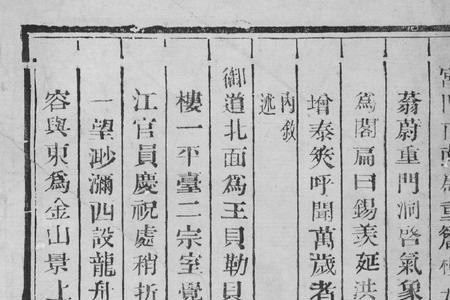 重簷
蓊蔚重門洞啓氣象
爲閣扁曰錫羨延洪
增泰筴呼聞萬歲者
內敘
述
御道北面爲王貝勒貝
樓一平臺二宗室覺
江官員慶祝處稍折
一望渺瀰西設龍舟
容與東爲金山景上